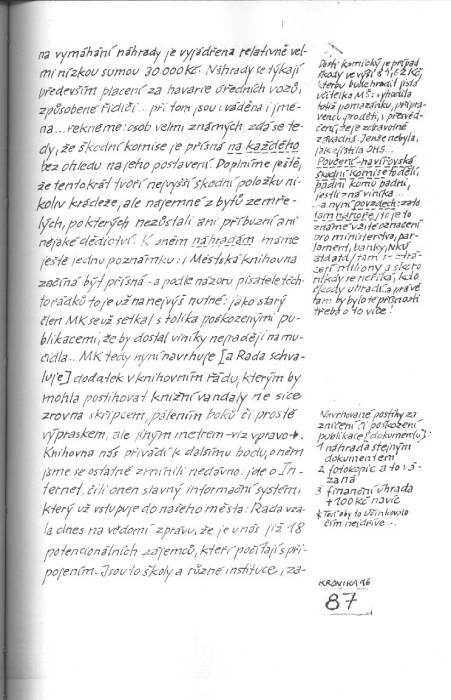 na vymáhání náhrady je vyjádřena relativně vel-
mi nízkou sumou 30.000Kč. Náhrady se týkají
především placení za havarie úředních vozů,
způsobené řidiči... při tom jsou uváděna i jmé-
na... řekněme: osob velmi známých, zdá se te-
dy, že škodní komise je přísná na každého
bez ohledu na jeho postavení. Doplníme ještě,
že tentokrát tvoří nejvyšší škodní položku ni-
koliv krádeže, ale nájemné z bytů zemře-
lých, po kterých nezůstali ani příbuzní ani
nějaké dědictví. K oněm náhradám máme
ještě jednu poznámku: i Městská knihovna
začíná být přísná - a podle názoru pisatele těch-
to řádků to je už na nejvýš nutné: jako starý
člen MK se už setkal s tolika poškozenými pu-
blikacemi, že by dostal viníky nejraději na mu-
čidla... MK tedy nyní navrhuje [a Rada schva-
luje] dodatek v knihovním řádu, kterým by
mohla postihovat knižní vandaly ne sice
zrovna skřipcem, pálením boků či prostě
výpraskem, ale jiným metrem - viz vpravo.
Knihovna nás přivádí k dalšímu bodu, o něm
jsme se ostatně zmínili nedávno: jde o In-
ternet, čili onen slavný informační systém,
který už vstupuje do našeho města: Rada vza-
la dnes na vědomí zprávu, že je u nás již 18
potencionálních zájemců, kteří počítají s při-
pojením. Jsou to školy a různé instituce, za-
komický je případ
škody ve výši 81,62 Kč,
kterou bude hradit jistá
učitelka MŠ: vyhodila
totiž pomazánku, připra-
venou pro děti, v přesvěd-
čení, že je zdravotně
závadná. Jenže nebyla,
jak zjistila OHS...
Poučení - havířovská
škodní komise to dělí,
padni komu padni,
jestli zná viníka...
...a nyní povzdech: zato
tam nahoře /to je to
známé vžité označení
pro ministerstva, par-
lament, banky, NKÚ
atd atd/ tam se ztrá-
cejí miliony a skoro
nikdy se neříká, kdo
škody uhradí... a právě
tam by bylo té přísnosti
třeba o to více!
Navrhované postihy za
zničení či poškození
publikace [dokumentu]:
1 náhrada stejným
dokumentem
2 fotokopie a to vá-
zaná
3 finanční úhrada
+100 Kč navíc
* Teď aby to účinkovalo
čím nejdříve...
KRONIKA 96
87